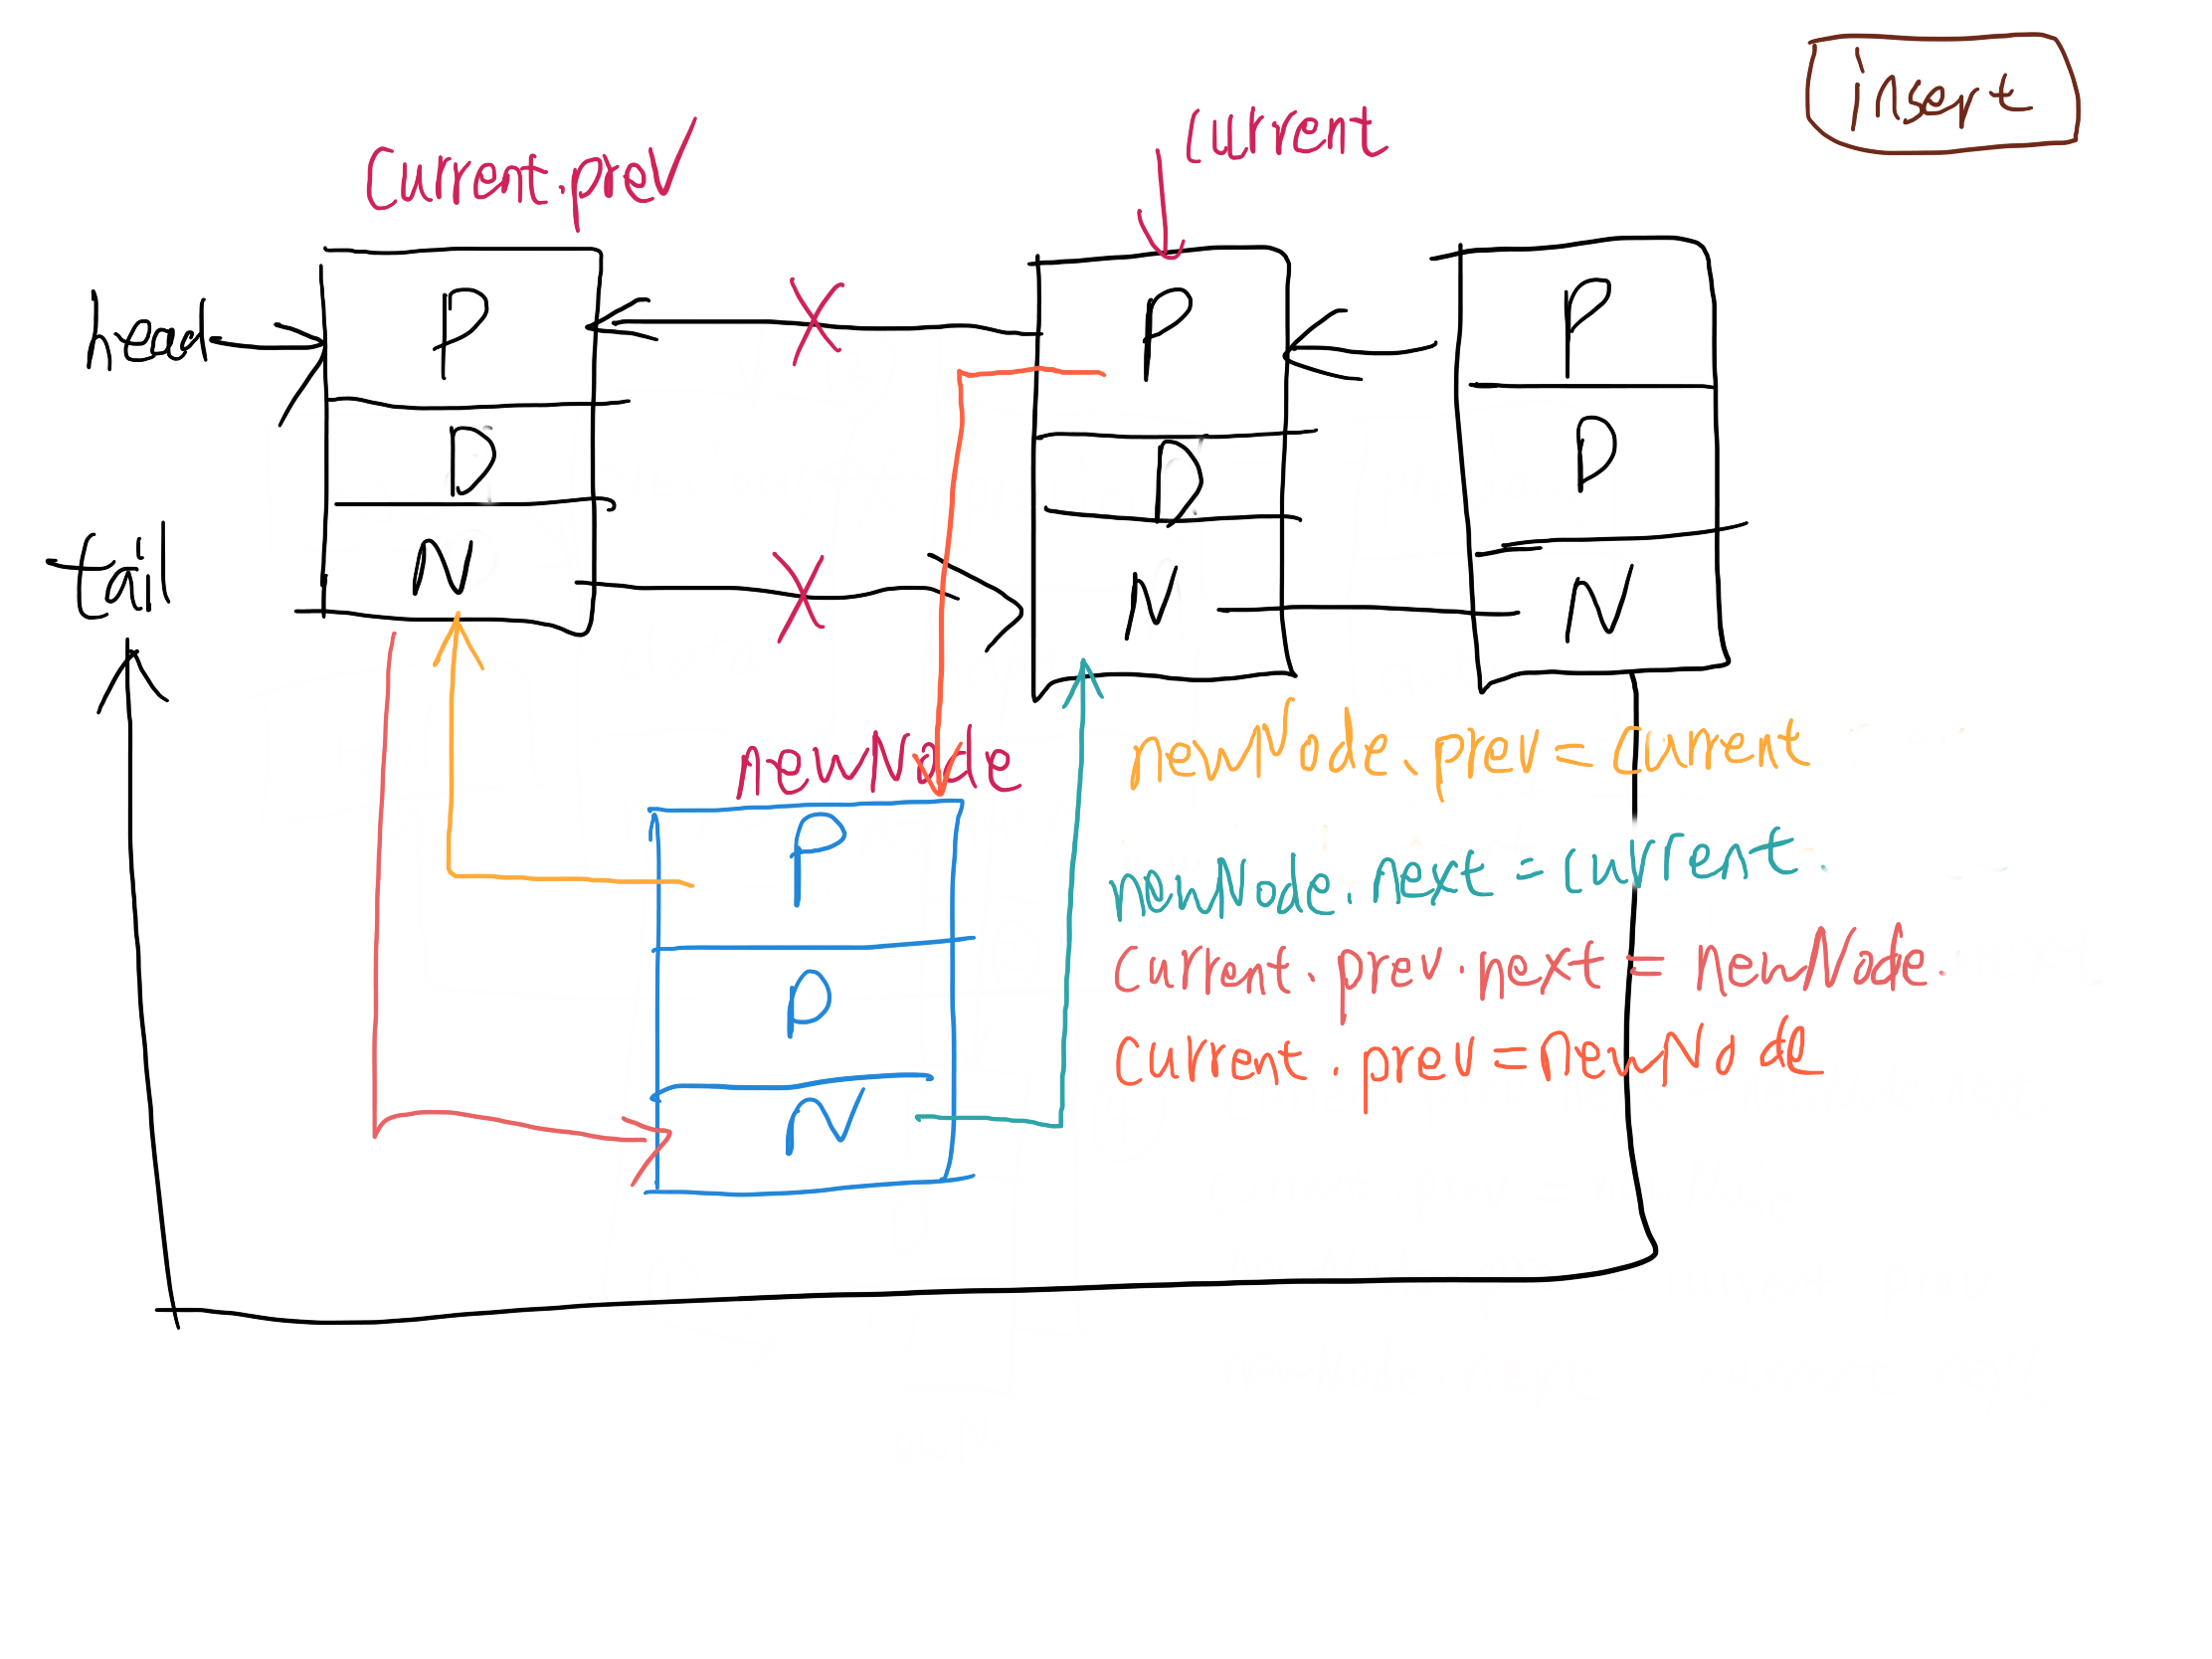 insert
current
current.prev
head
P
D
N
P
D
N
P
D
N
tail
newNode
P
D
N
newNode.prev = current
newNode.next = current.
current.prev.next = newNode.
current.prev = newNode